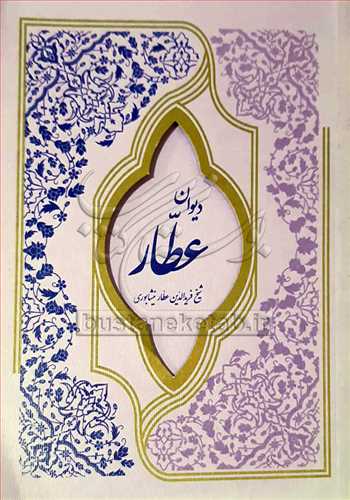 دیوان
عطّار
شیخ فریدالدین عطار نیشابوری
bustaneketab.ir